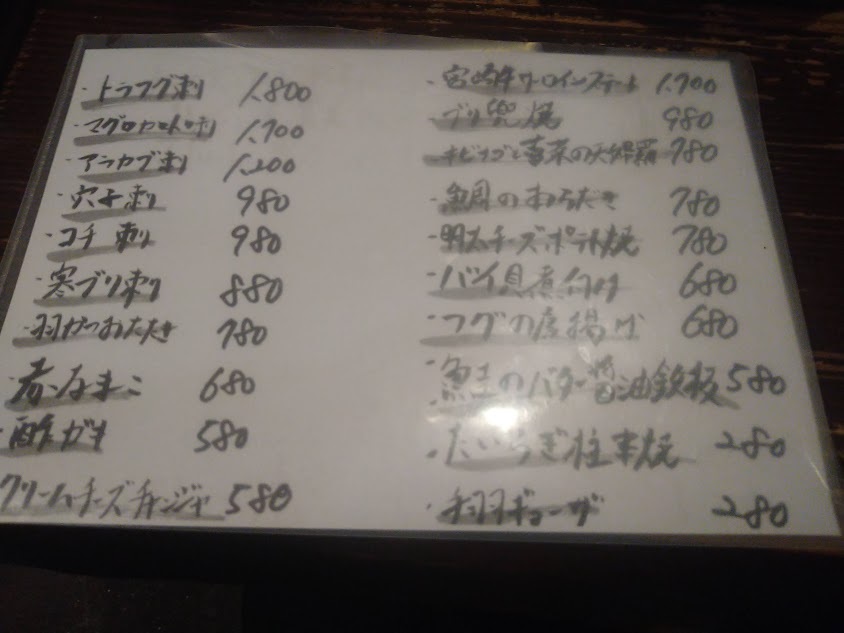 ・トラフグ刺 1.800
・マグロカマトロ刺 1.700
・アラカブ刺 1.200
・穴子刺 980
・コチ刺 980
・寒ブリ刺 880
・羽かつおたたき 780
・赤なまこ 680
・酢ガキ 580
クリームチーズチャンジャ 580
・宮崎牛サーロインステーキ 1.700
・ブリ兜焼 980
・キビナゴと春菜の天婦羅 780
・鯛のあらだき 780
・明太チーズポテト焼 780
・バイ貝煮付け 680
・フグの唐揚げ 680
・鮭のバター醤油鉄板 580
・たいらぎ柱串焼 280
・手羽ギョーザ 280